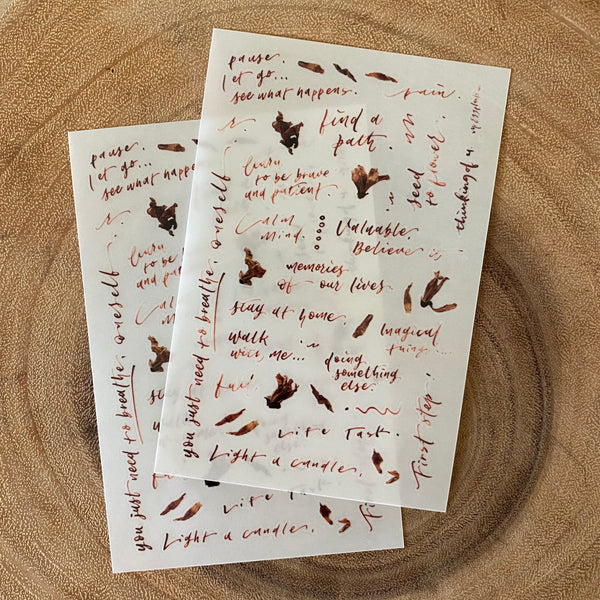 pause.
let go...
see what happens.
rain.
find a
path.
learn
to be brave
and patient.
seed
to flower.
thinking of u.
Calm
Mind.
Valuable.
Believe
memories
of our lives.
stay at home.
walk
with me...
Magical
thing...
doing
something
else.
Life Task.
Light a candles.
First step.
you just need to breathe. oneself
pause.
let go...
see what happens
learn
to be
and pat
Calm
Mi
stay
wal
you just need to breathe. oneself
Life Task
Light a candles.
Fi